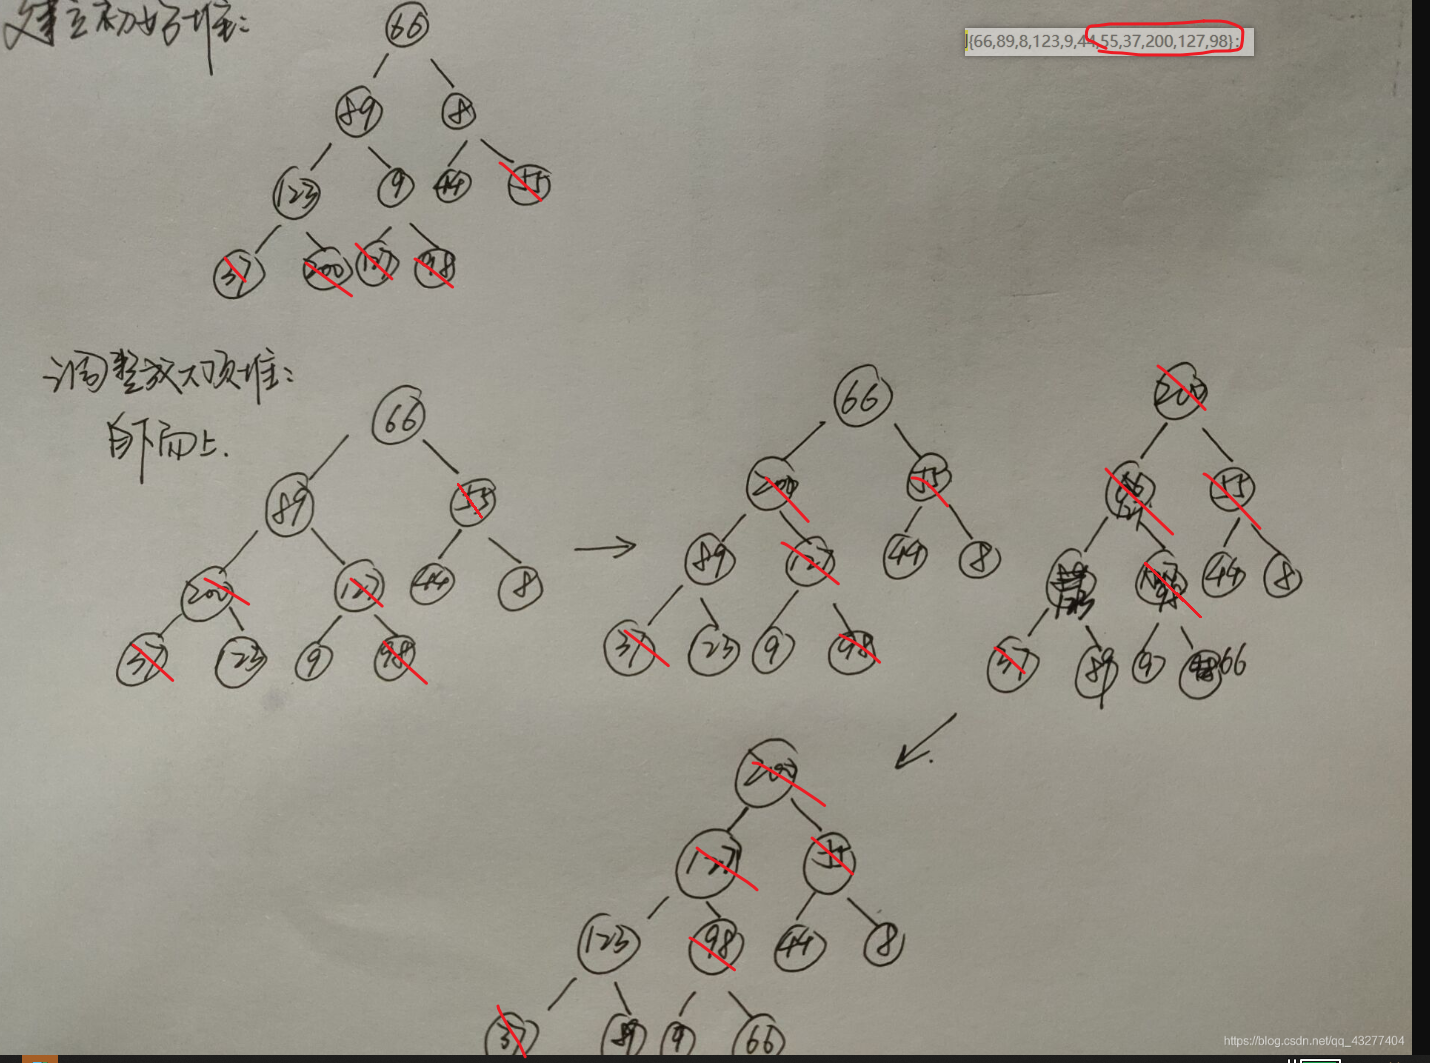 建立初始堆:
{66,89,8,123,9,44,55,37,200,127,98};
66
89 8
123 9 44 55
37 200 127 98
调整放大顶堆:
自下而上.
66
89 55
200 127 44 8
37 123 9 98
66
200 55
89 127 44 8
37 123 9 98
200
55
44 8
37 89 9 66
200
127 55
123 98 44 8
37 89 9 66
https://blog.csdn.net/qq_43277404